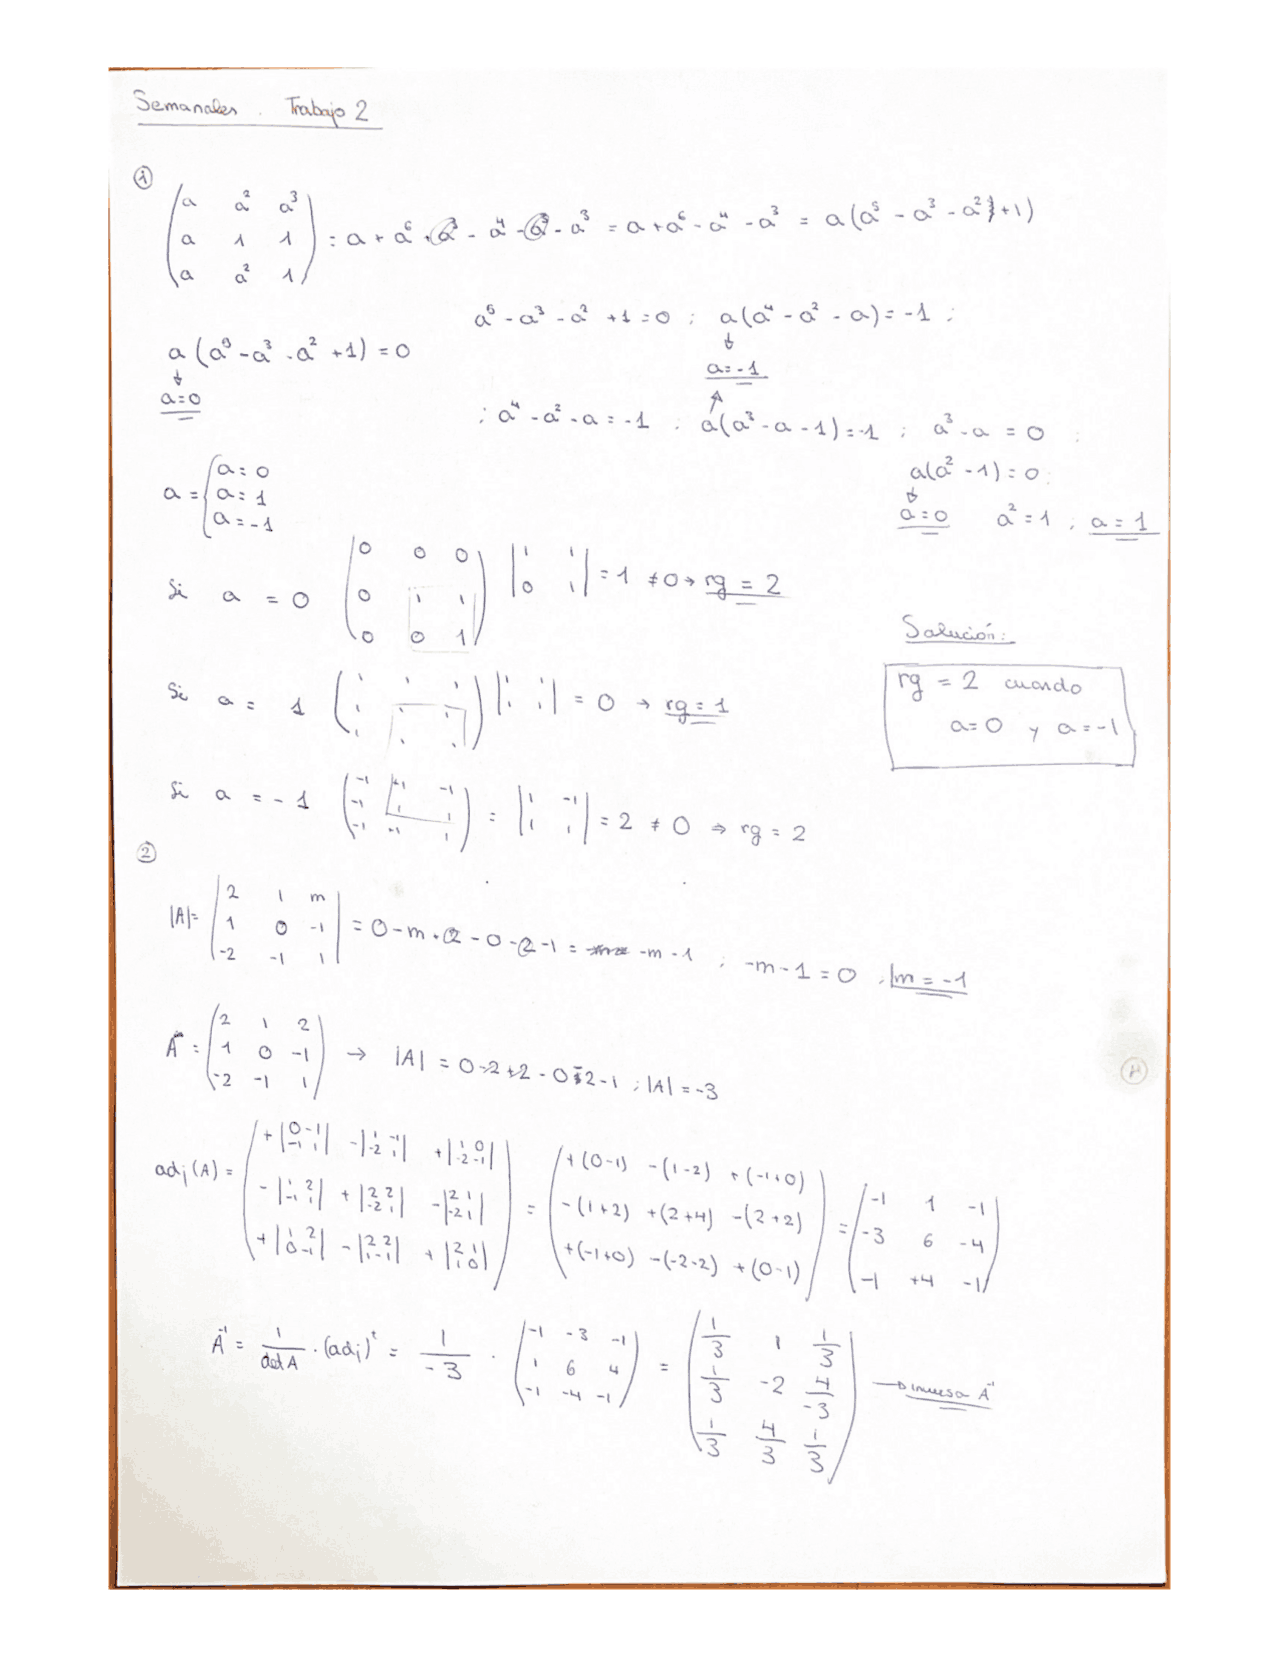 Semanales. Trabajo 2
①
(a a² a³; a 1 1; a a² 1) = a + a⁶ + a³ - a⁴ - a³ - a³ = a + a⁶ - a⁴ - a³ = a(a⁵ - a³ - a² + 1)
a⁵ - a³ - a² + 1 = 0 ; a(a⁴ - a² - a) = -1 ;
a(a⁵ - a³ - a² + 1) = 0
↓
a = -1
a = 0
; a⁴ - a² - a = -1 ; a(a³ - a - 1) = -1 ; a³ - a = 0 ;
a(a² - 1) = 0
↓
a = 0 a² = 1 ; a = 1
a = { a = 0
a = 1
a = -1
Si a = 0 (0 0 0; 0 1 1; 0 0 1) |1 1; 0 1| = 1 ≠ 0 → rg = 2
Solución:
rg = 2 cuando
a = 0 y a = -1
Si a = 1 (1 1 1; 1 1 1; 1 1 1) |1 1; 1 1| = 0 → rg = 1
Si a = -1 (-1 +1 -1; -1 1 1; -1 +1 1) = |1 -1; 1 1| = 2 ≠ 0 ⇒ rg = 2
②
|A| = |2 1 m; 1 0 -1; -2 -1 1| = 0 - m + 2 - 0 - 2 - 1 = -m - 1 ; -m - 1 = 0 ; m = -1
A = (2 1 2; 1 0 -1; -2 -1 1) → |A| = 0 - 2 + 2 - 0 - 2 - 1 ; |A| = -3
adj(A) = (+|0 -1; -1 1| -|1 -1; -2 1| +|1 0; -2 -1|; -|1 2; -1 1| +|2 2; -2 1| -|2 1; -2 1|; +|1 2; 0 -1| -|2 2; 1 -1| +|2 1; 1 0|) = (+(0-1) -(1-2) +(-1+0); -(1+2) +(2+4) -(2+2); +(-1+0) -(-2-2) +(0-1)) = (-1 1 -1; -3 6 -4; -1 +4 -1)
A⁻¹ = 1/det A · (adj)ᵗ = 1/-3 · (-1 -3 -1; 1 6 4; -1 -4 -1) = (1/3 1 1/3; 1/-3 -2 4/-3; 1/3 4/3 1/3) → inversa A⁻¹